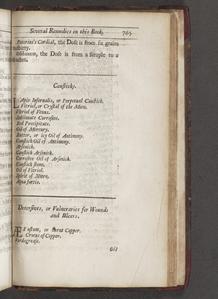 Several Remedies in this Book. 765
Cordial, the Dose is from six grains
the Dose is from a scruple to a
Causticks.
Lapis Infernalis, or Perpetual Caustick.
Vitriol, or Crystal of the Moon.
Vitriol of Venus.
Sublimate Corrosive.
Red Precipitate.
Oil of Mercury.
Butter, or icy Oil of Antimony.
Caustick Oil of Antimony.
Arsenick.
Caustick Arsenick.
Corrosive Oil of Arsenick.
Caustick stone.
Oil of Vitriol.
Spirit of Nitre.
Aqua fortis.
Detersives, or Vulneraries for Wounds
and Ulcers.
Æs ustum, or burnt Copper.
Crocus of Copper.
Verdegrease.
Oil